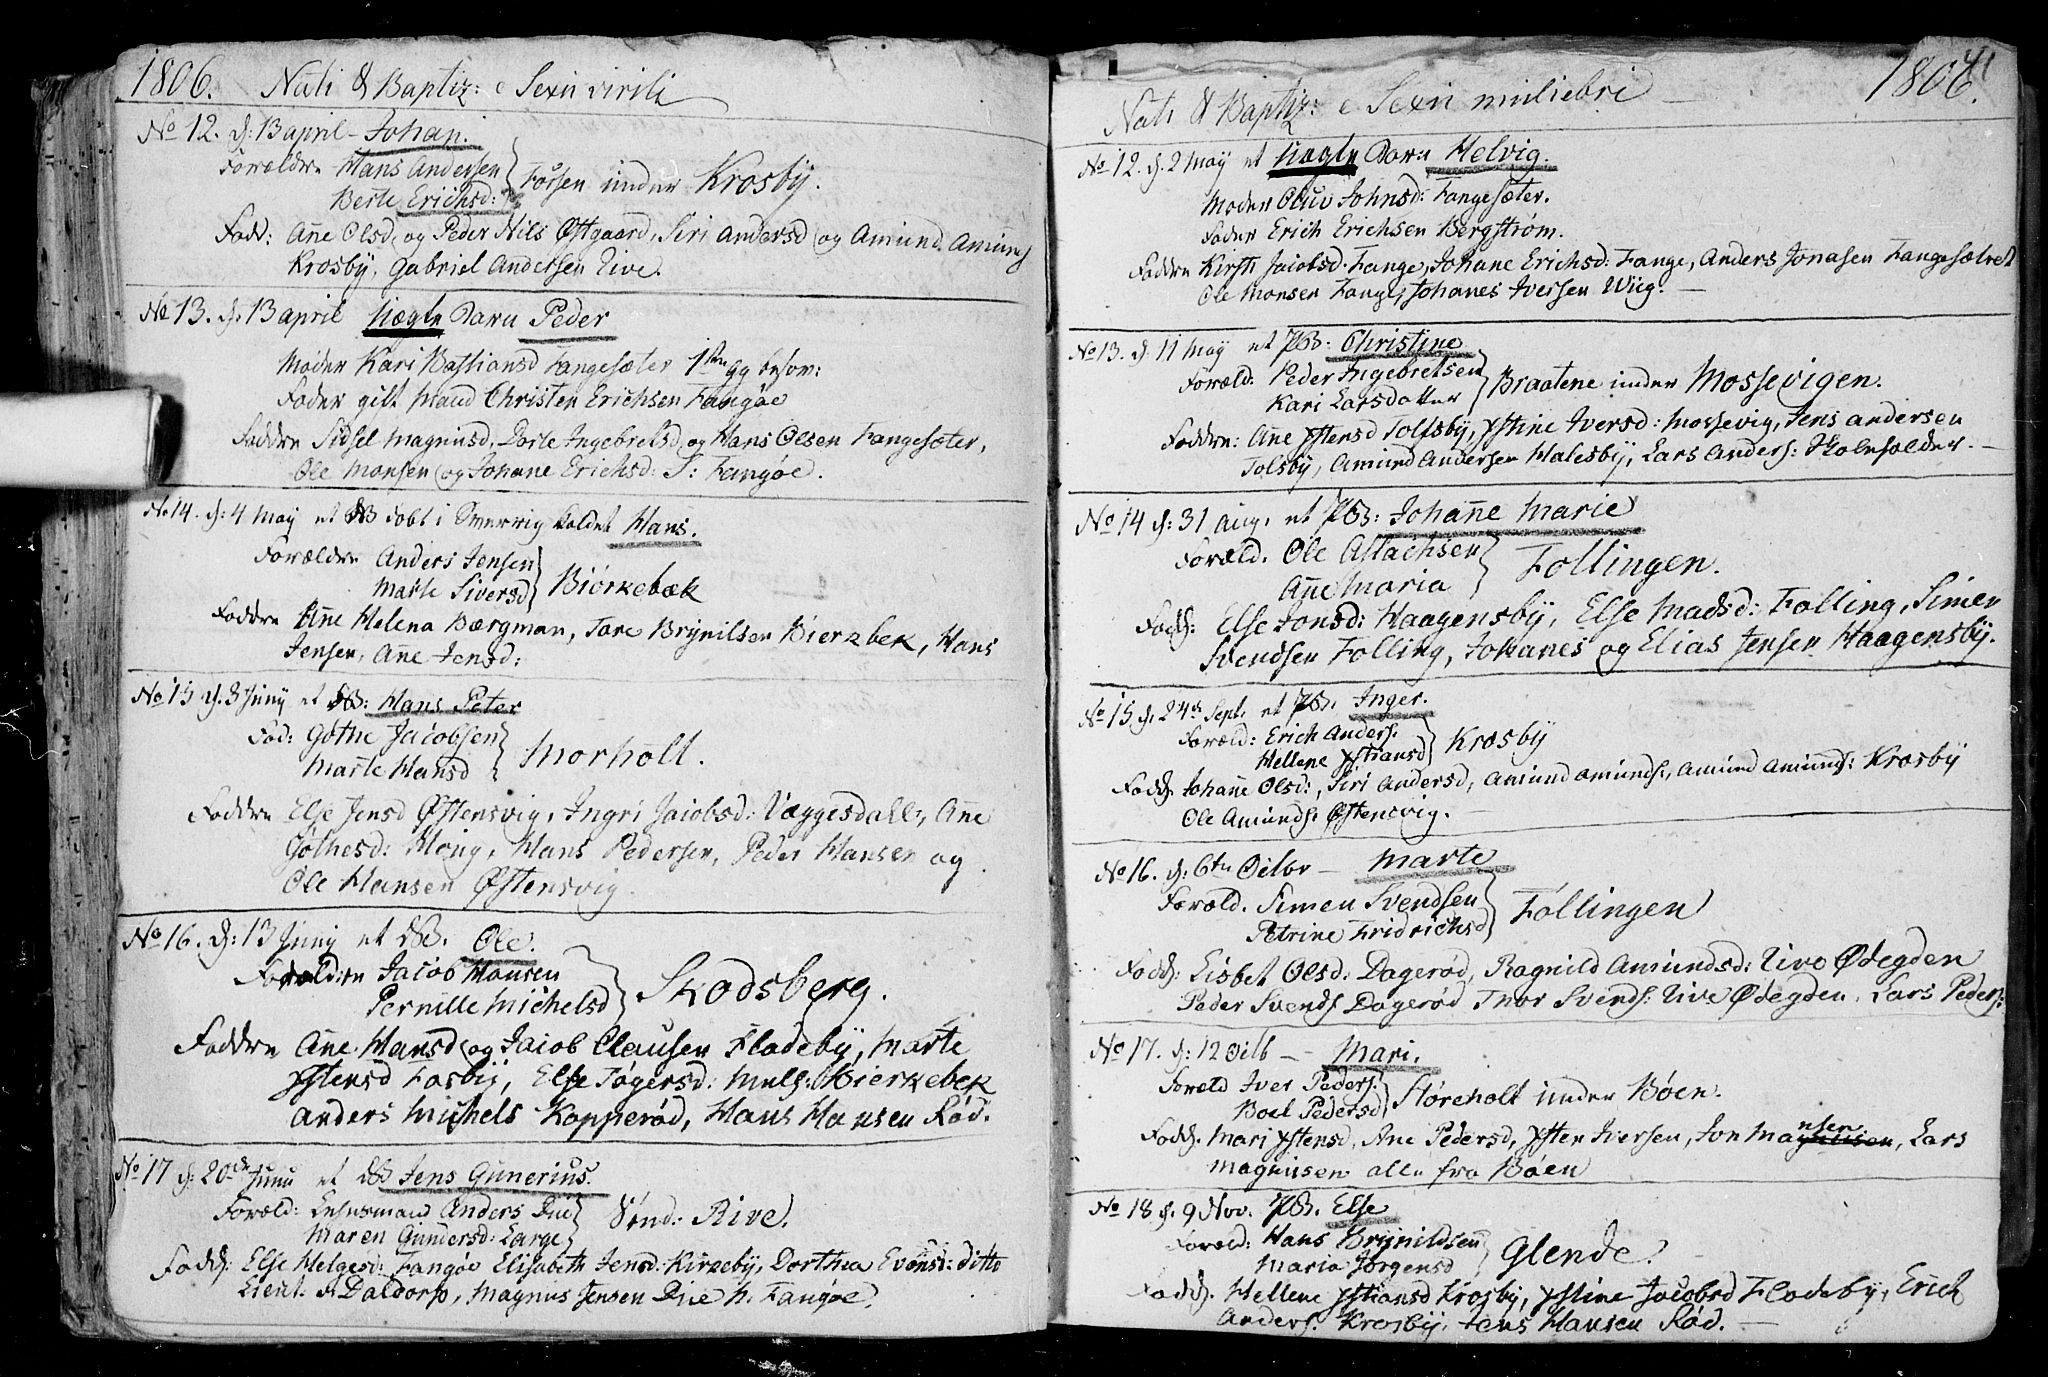 1806. Nati & Baptiz: e Sexu virili
No 12. d: 13 april - Johan.
Forældre Hans Andersen
Berte Erichsd:
Fossen under Krosby.
Fadd: Añe Olsd, og Peder Nils Østgaard, Siri Andersd og Amund Amunds
Krosbÿ, Gabriel Andersen Eive.
No 13. d. 13 april Uægte Barn Peder
Moder Kari Bastiansd Fangesæter 1ste gg besov:
Fader gift Mand Christen Erichsen Fangøe
Faddre Sidsel Magnusd, Dorte Ingebretsd og Hans Olsen Fangesæter,
Ole Monsen og Johane Erichsd: S: Fangøe.
No 14. d: 4 May et DB døbt i Sverrig kaldet Hans.
Forældre Anders Jensen
Marte Siversd
Biörkebæk
Faddre Añe Helena Bærgman, Tore Brÿnilsen Bierkbek, Hans
Jensen, Añe Jensd:
No 15 d. 8 Junÿ et DB: Hans Peter
Fod: Gøthe Jacobsen
Marte Hansd
Morholt.
Faddre Else Jensd Østensvig, Ingri Jacobsd: Væggesdall, Añe
Gøthesd: Høug, Hans Pedersen, Peder Hansen og
Ole Hansen Østensvig.
No 16. d: 13 Junÿ et DB. Ole.
Forældre Jacob Hansen
Pernille Michelsd
Skodsberg.
Faddre Añe Hansd og Jacob Clausen Flodebÿ, Marte
Ystensd Fosbÿ, Else Tøgersd: Mulf: Bierkebek
Anders Michels Kopperød, Hans Hansen Rød.
No 17 d: 20de Junii et DB Jens Gunerius.
Foræld: Lehnsmand Anders Due
Maren Gundersd: Large
Sønd: Rive.
Fadd: Else Helgesd: Fangøe Elisabeth Jensd: Kirkebÿ, Dorthea Evensd: ditto
Lieut. Daldorp, Magnus Jensen Due N. Fangøe.
1806. 41
Nati & Baptiz: e Sexu muliebri
No 12. d. 2 Maÿ et Uægte Barn Helvig.
Moder Oluv Johnsd: Fangesæter.
Fader Erich Erichsen Bergstrøm.
Faddre Kirsti Jacobsd: Fange, Johane Erichsd: Fange, Anders Jonasen Fangesætret
Ole Monsen Fange, Johanes Iversen Wiig.
No 13. d. 11 Maÿ et PB: Christine
Foræld: Peder Ingebretsen
Kari Larsdatter
Braatene under Mossevigen.
Faddre: Añe Ystensd Tolsbÿ, Ystine Iversd: Mossevig, Jens Andersen
Tolsbÿ, Amund Andersen Halesbÿ, Lars Anders: Skoleholder.
No 14 d: 31 Aug. et PB: Johañe Marie
Foræld. Ole Aslachsen
Añe Maria
Follingen.
Fadd: Else Jonsd: Haagensbÿ, Else Madsd: Folling, Simen
Svendsen Folling, Johanes og Elias Jensen Haagensbÿ.
No 15. d. 24de Sept. et PB. Inger.
Foræld: Erich Anders:
Hellene Ystiansd
Krosbÿ
Fadd. Johañe Olsd:, Siri Andersd, Amund Amunds:, Amund Amunds: Krosbÿ
Ole Amunds: Østensvig.
No 16. d: 6te Octbr - Marte
Foræld. Simen Svendsen
Petrine Fridrichsd
Follingen
Fadd: Lisbet Olsd. Dagerød, Ragnild Amundsd: Live Ødegden
Peder Svends. Dagerød Thor Svends: Live Ødegden, Lars Peders:
No 17. d: 12 Octb - Mari.
Foræld Iver Peders:
Boel Pedersd
Støreholt under Bøen.
Fadd. Mari Ystensd, Ane Pedersd, Ysten Iversen, Jon Monsen, Lars
Magnusen alle fra Bøen
No 18 d. 9 Nov. PB. Else
Foræld: Hans Brÿnildsen
Maria Jørgensd
Glende.
Fadd. Hellene Ystiansd Krosbÿ, Ystine Jacobsd Flodebÿ, Erich
Anders: Krosbÿ, Jens Hansen Rød.